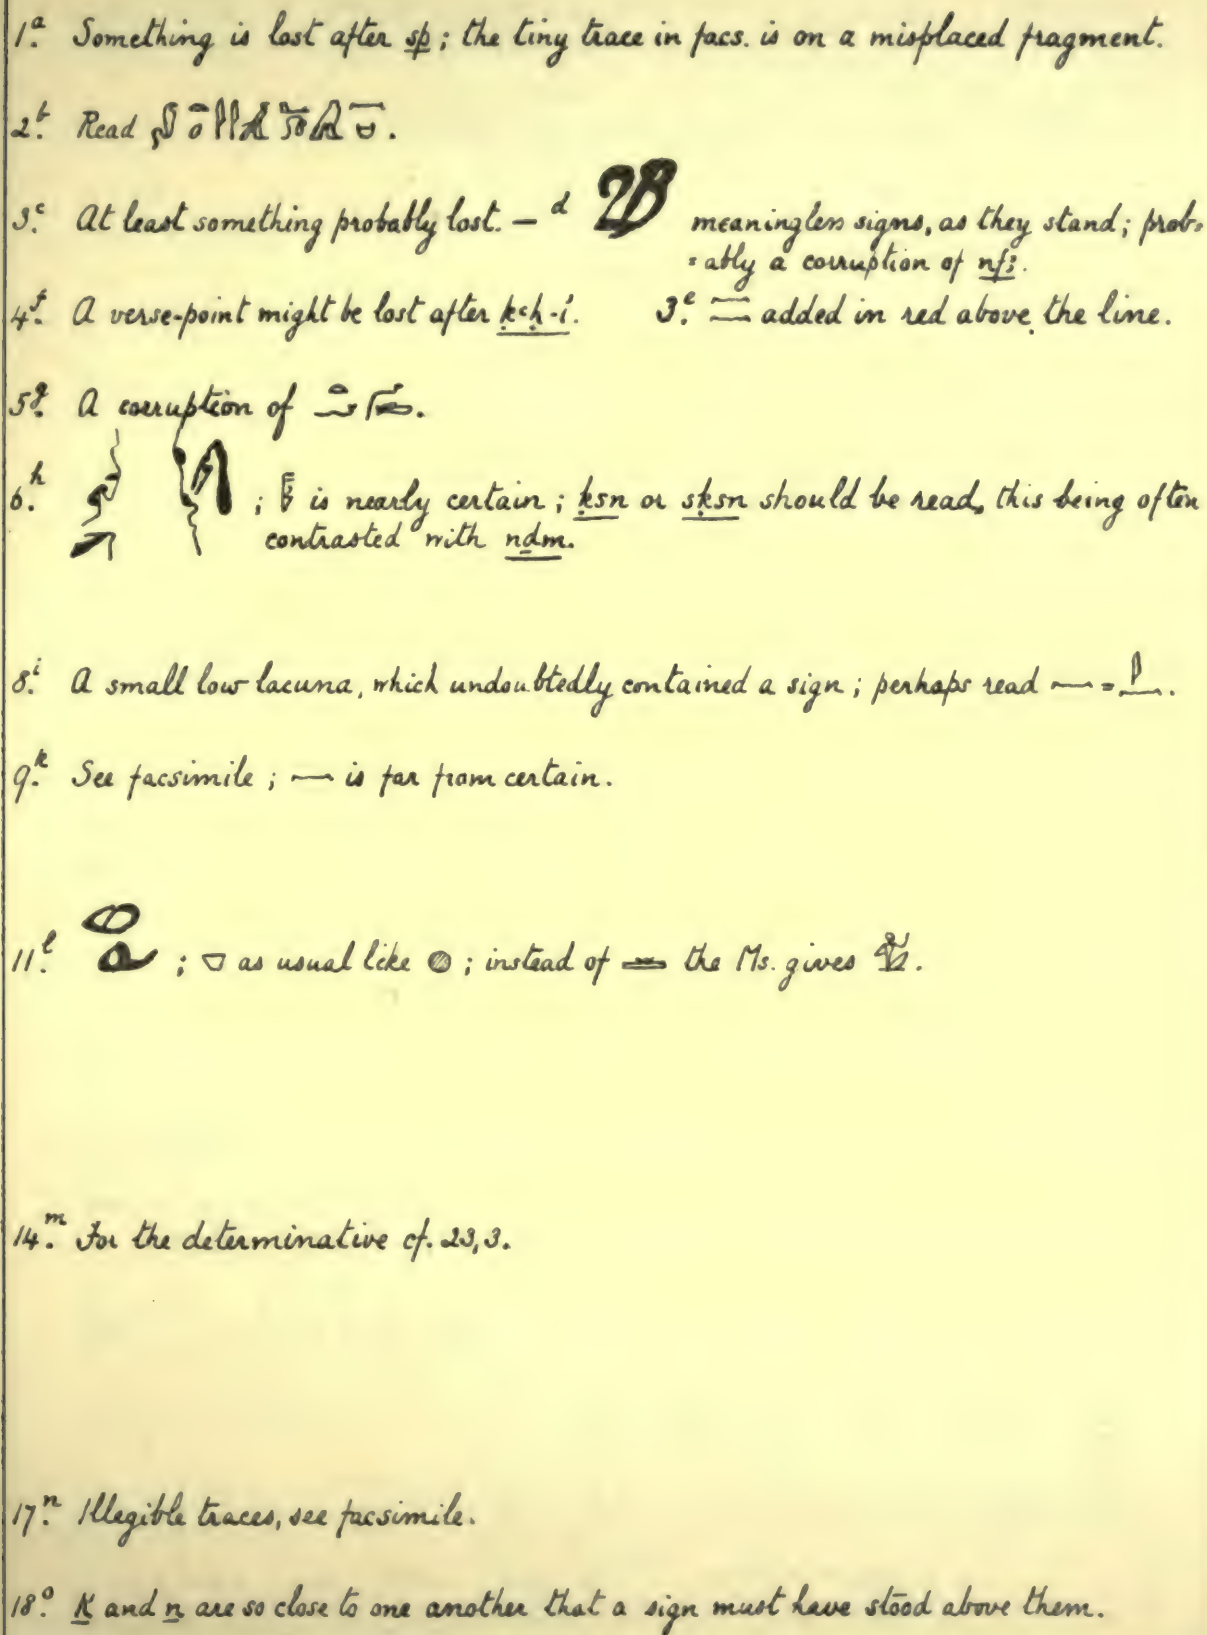 1.ᵃ Something is lost after sp; the tiny trace in facs. is on a misplaced fragment.
2.ᵇ Read .
3.ᶜ At least something probably lost. — ᵈ meaningless signs, as they stand; prob-
-ably a corruption of nfꜣ.
4.ᶠ A verse-point might be lost after ḳꜥḥ-i. 3.ᵉ added in red above the line.
5.ᵍ A corruption of .
6.ʰ ; is nearly certain; ḳsn or sḳsn should be read, this being often
contrasted with nḏm.
8.ⁱ A small low lacuna, which undoubtedly contained a sign; perhaps read = .
9.ᵏ See facsimile; is far from certain.
11.ˡ ; as usual like ; instead of the Ms. gives .
14.ᵐ For the determinative cf. 23,3.
17.ⁿ Illegible traces, see facsimile.
18.ᵒ K and n are so close to one another that a sign must have stood above them.